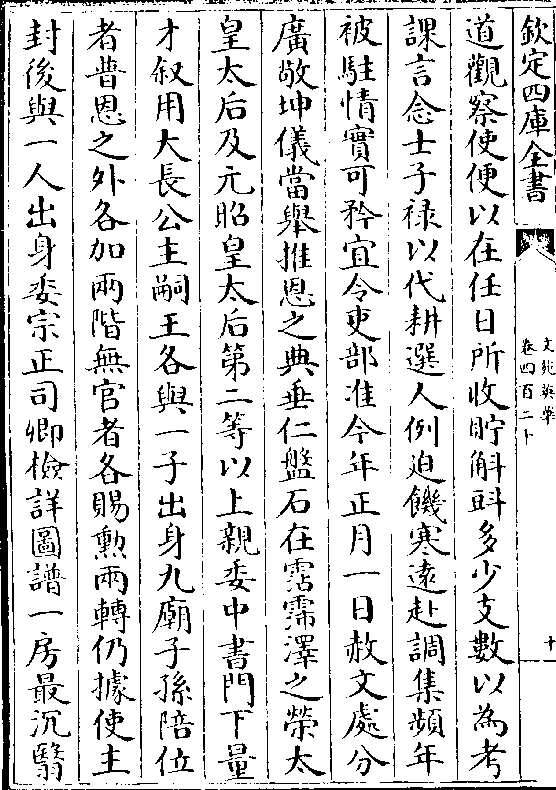 欽定四庫全書
文苑英華
卷四百二十
十
道觀察使便以在任日所收貯斛㪷多少支數以為考
課言念士子禄以代耕選人例迫饑寒逺赴調集頻年
被駐情實可矜宜令吏部准今年正月一日赦文處分
廣敬坤儀當舉推恩之典垂仁盤石在霑霈澤之榮太
皇太后及元昭皇太后第二等以上親委中書門下量
才叙用大長公主嗣王各與一子出身九廟子孫陪位
者普恩之外各加兩階無官者各賜勲兩轉仍據使主
封後與一人出身委宗正司卿檢詳圖譜一房最沉翳